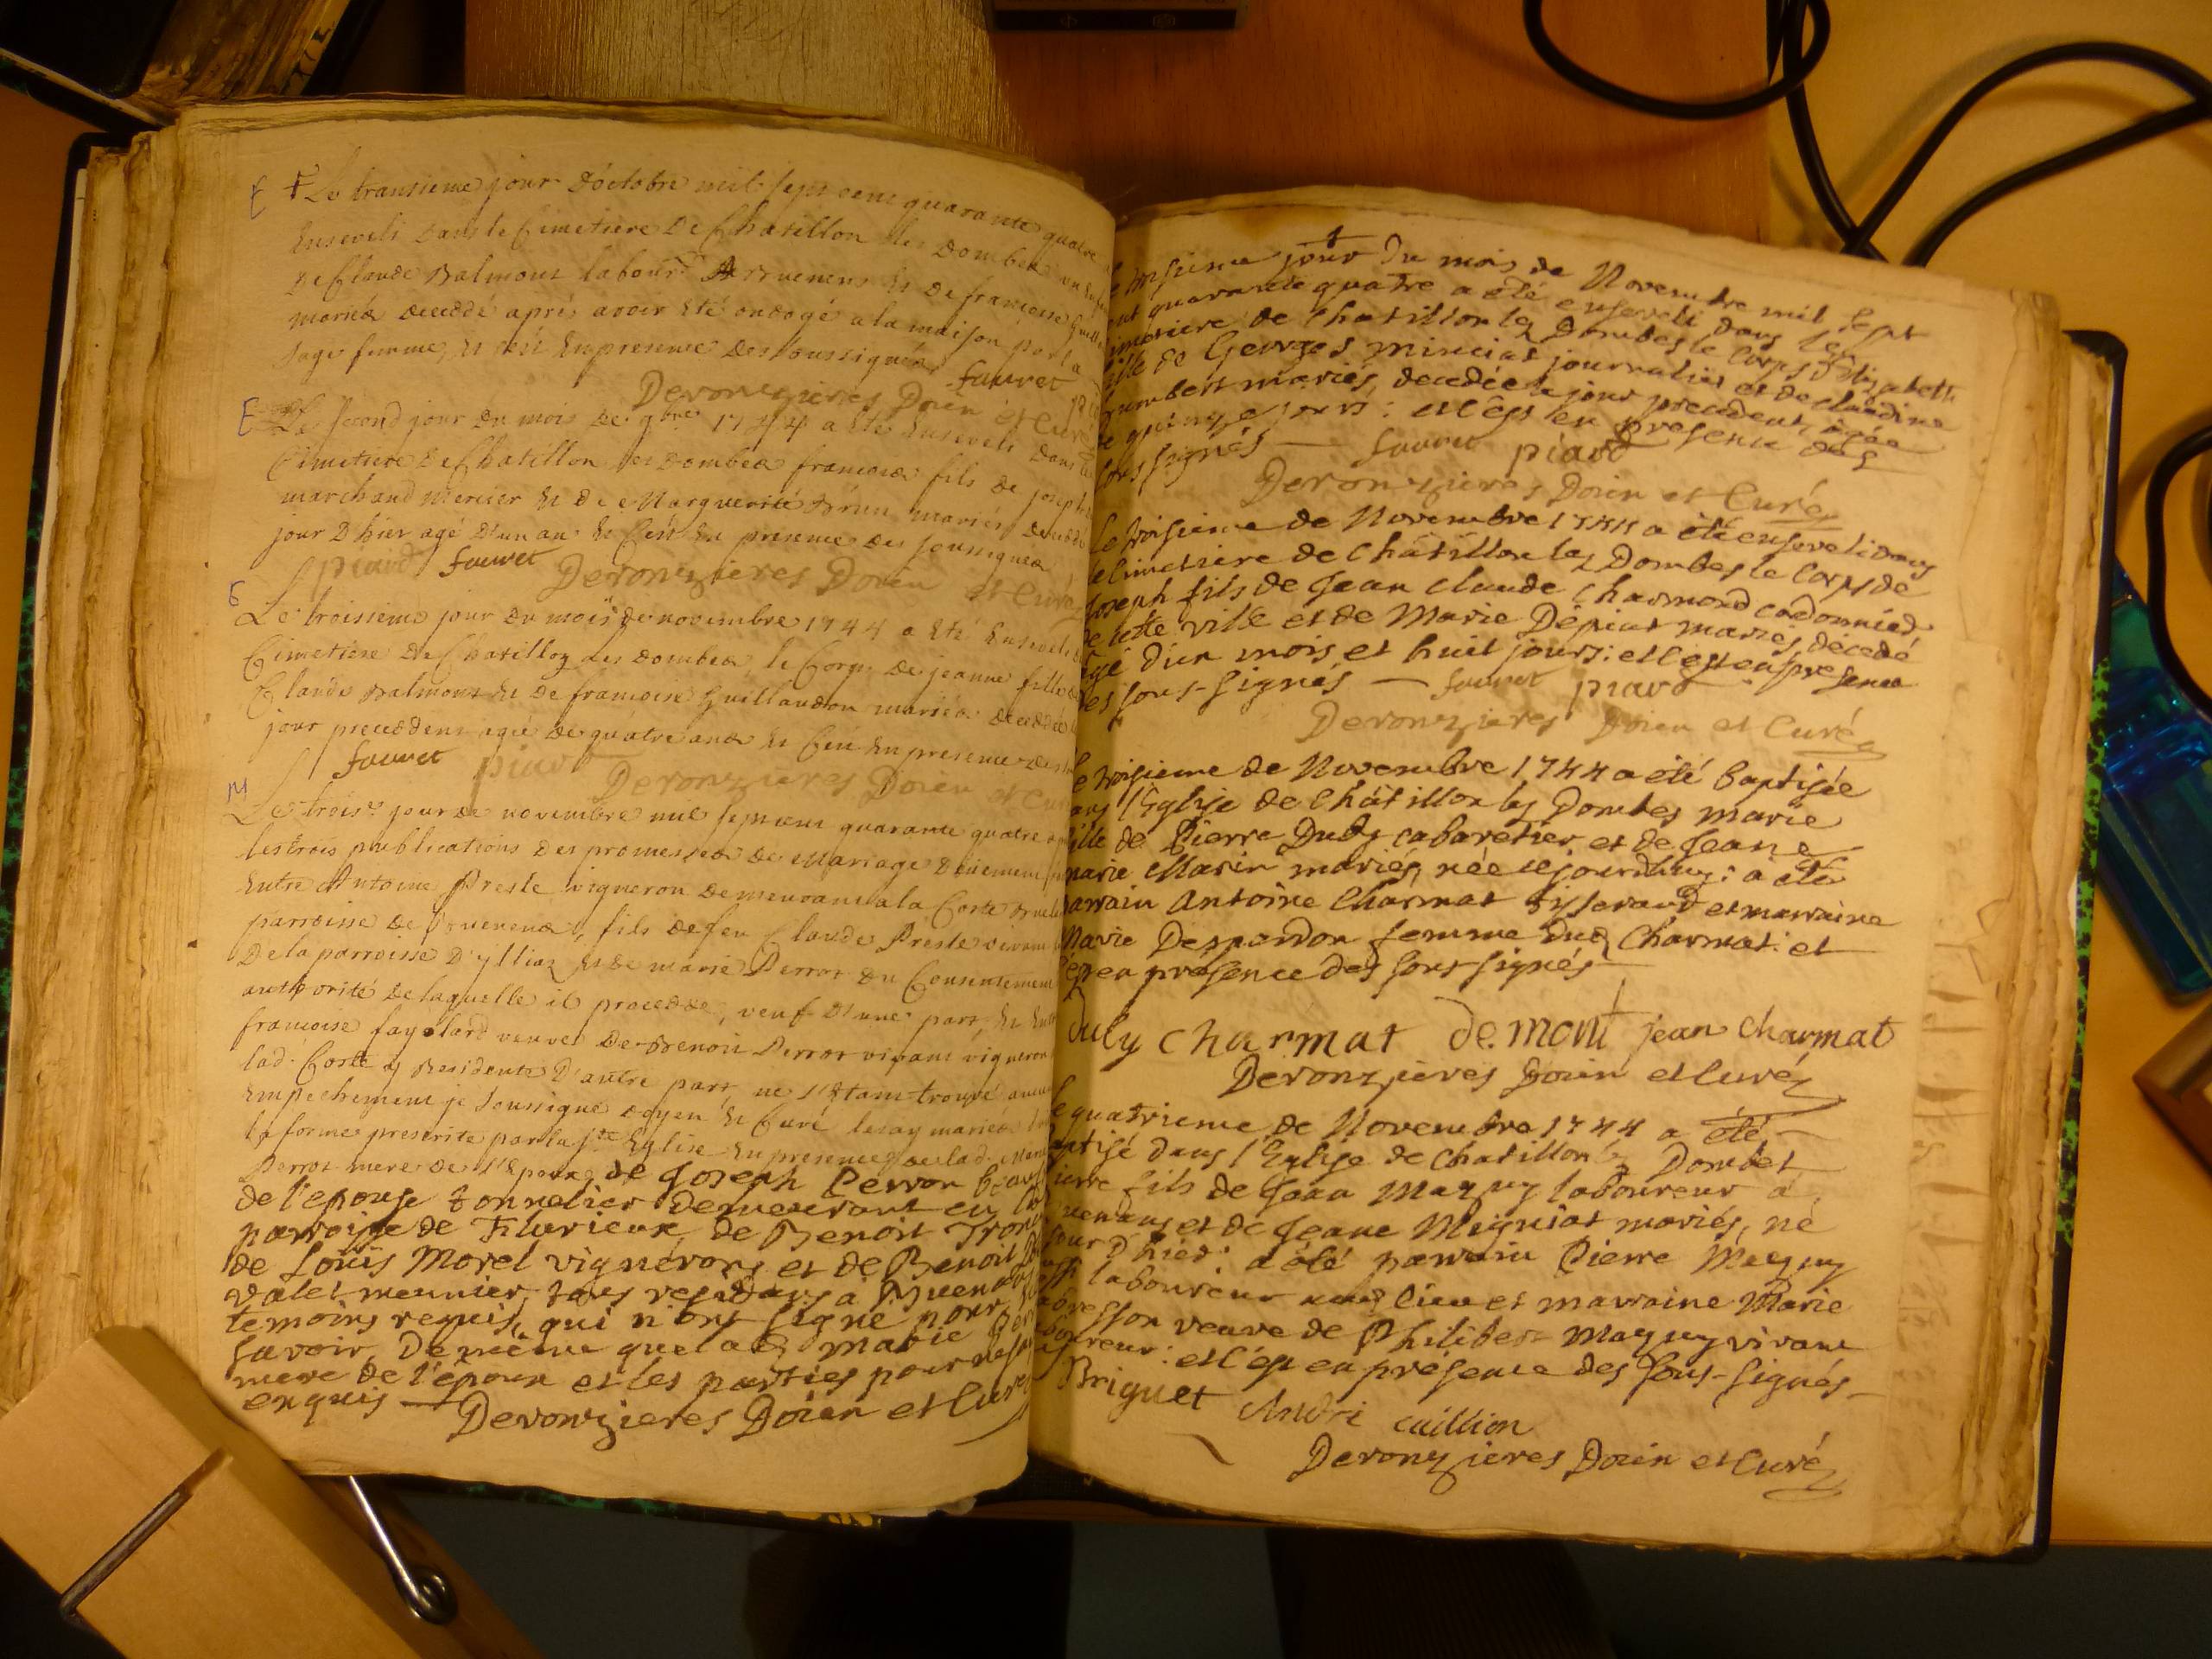 E Le transieme jour d'octobre mil sept cent quarante quatre
Enseveli dans le Cimetiere De Chatillon les Dombes un enfant
De Claude Dalmont labour. a Bruenens et De françoise
mariés decedé aprés avoir Eté ondogé a la maison par la
sage femme, et cest En presence Des soussignés
Fauvet
Deronzieres Doien et Curé
E Le second jour du mois De 9bre 1744 a Eté Enseveli dans le
Cimetiere De Chatillon les Dombes françois fils de joseph
marchand Mercier et De Marguerite Brun mariés decedé
jour D'hier agé D'un an et Cest En presence Des soussignés
piard Fauvet Deronzieres Doien et Curé
E
Le troisieme jour Du mois De novembre 1744 a Eté Enseveli
Cimetiere De Chatillon les Dombes le Corps De jeanne fille
Claude Dalmont et De françoise Guillaudon mariés decedée
jour precedent agée De quatre ans et Cest En presence Des
Fauvet piard
Deronzieres Doien et Curé
M
Le trois.e jour De novembre mil sept cent quarante quatre
les trois publications Des promesses De Mariage Deuement
Entre Antoine Presle vigneron Demeurant a la Coste
parroisse de Buenens, fils De feu Claude Presle vivant
De la parroisse D'ylliaz et De marie Perrot Du Consentement
authorité De laquelle il procedde, veuf D'une part, et
françoise fayolard veuve De Benoit Perrot vivant vigneron
lad. Coste y Residente D'autre part, ne s'Etant trouvé aucun
Empechement je soussigné Doyen et Curé les ay mariés
la forme prescrite par la s.te Eglise En presence De lad.
Perrot mere De l'Epoux, de Joseph Perron
de l'epouse tonnelier demeurant en la
parroisse de Flurieux, de Benoit
de Loüis Morel vignerons et de Benoit
valet meunier, tous residans a Buenens
temoins requis, qui n'ont signé pour
savoir, De meme que lad. marie
mere de l'époux et les parties pour
enquis
Deronzieres Doien et Curé
troisieme jour Du mois de Novembre mil sept
cent quarante quatre a été enseveli dans le
cimetiere de Chatillon les Dombes le Corps d'Elisabeth
fille de Georges Minciat journalier et de claudine
humbert mariés, decedée le jour precedent, agée
de quinze jours: et c'est en presence des
sous signés Fauvet piard
Deronzieres Doien et Curé
Le troisieme de Novembre 1744 a été enseveli dans
le Cimetiere de Châtillon les Dombes le Corps de
Joseph fils de Jean Claude Charmond cordonnier
de cette ville et de Marie Depiat mariés, décedé
agé d'un mois et huit jours: et c'est en presence
des sous-signés Fauvet piard
Deronzieres Doien et Curé
Le troisieme de Novembre 1744 a été baptisée
dans l'Eglise de Châtillon les Dombes Marie
fille de Pierre Duly cabaretier et de Jeane
marie Marin mariés, née cejourdhuy: a été
parrain Antoine Charmat tisserand et marraine
Marie Despondon femme dud. Charmat: et
c'est en presence des sous signés
Duly Charmat Demont jean Charmat
Deronzieres Doien et Curé
Le quatrieme de Novembre 1744 a été
baptisé dans l'Eglise de Chatillon les Dombes
Pierre fils de Jean Mazuy laboureur a
Buenens et de Jeane Migniat mariés, né
jour D'hier: a été parrain Pierre Mazuy
aussi laboureur aud. lieu et marraine Marie
veuve de Philibert Mazuy vivant
laboureur: et c'est en présence des sous-signés
Briguet Andri caillion
Deronzieres Doien et Curé